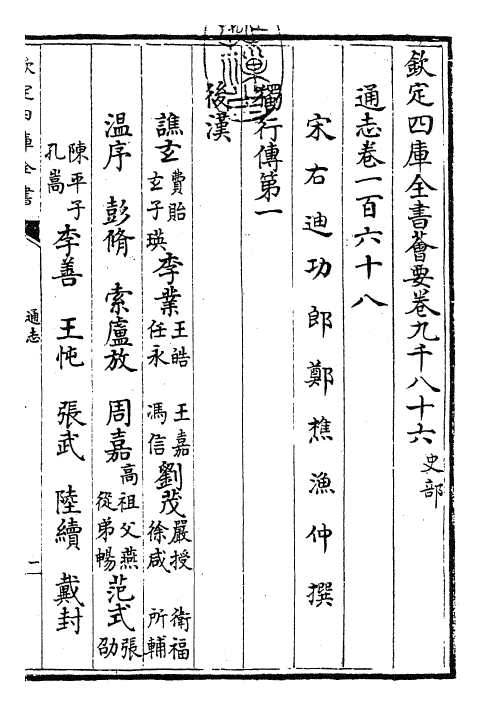 欽定四庫全書薈要卷九千八十六 史部
通志卷一百六十八
宋右迪功郎鄭樵漁仲撰
獨行傳第一
後漢
譙玄 費貽 玄子瑛 李業 王皓 王嘉 任永 馮信 劉茂 嚴授 衛福 徐咸 所輔
温序 彭脩 索廬放 周嘉 高祖父燕 從弟暢 范式 張劭
陳平子 孔嵩 李善 王忳 張武 陸續 戴封
欽定四庫全書 通志 一